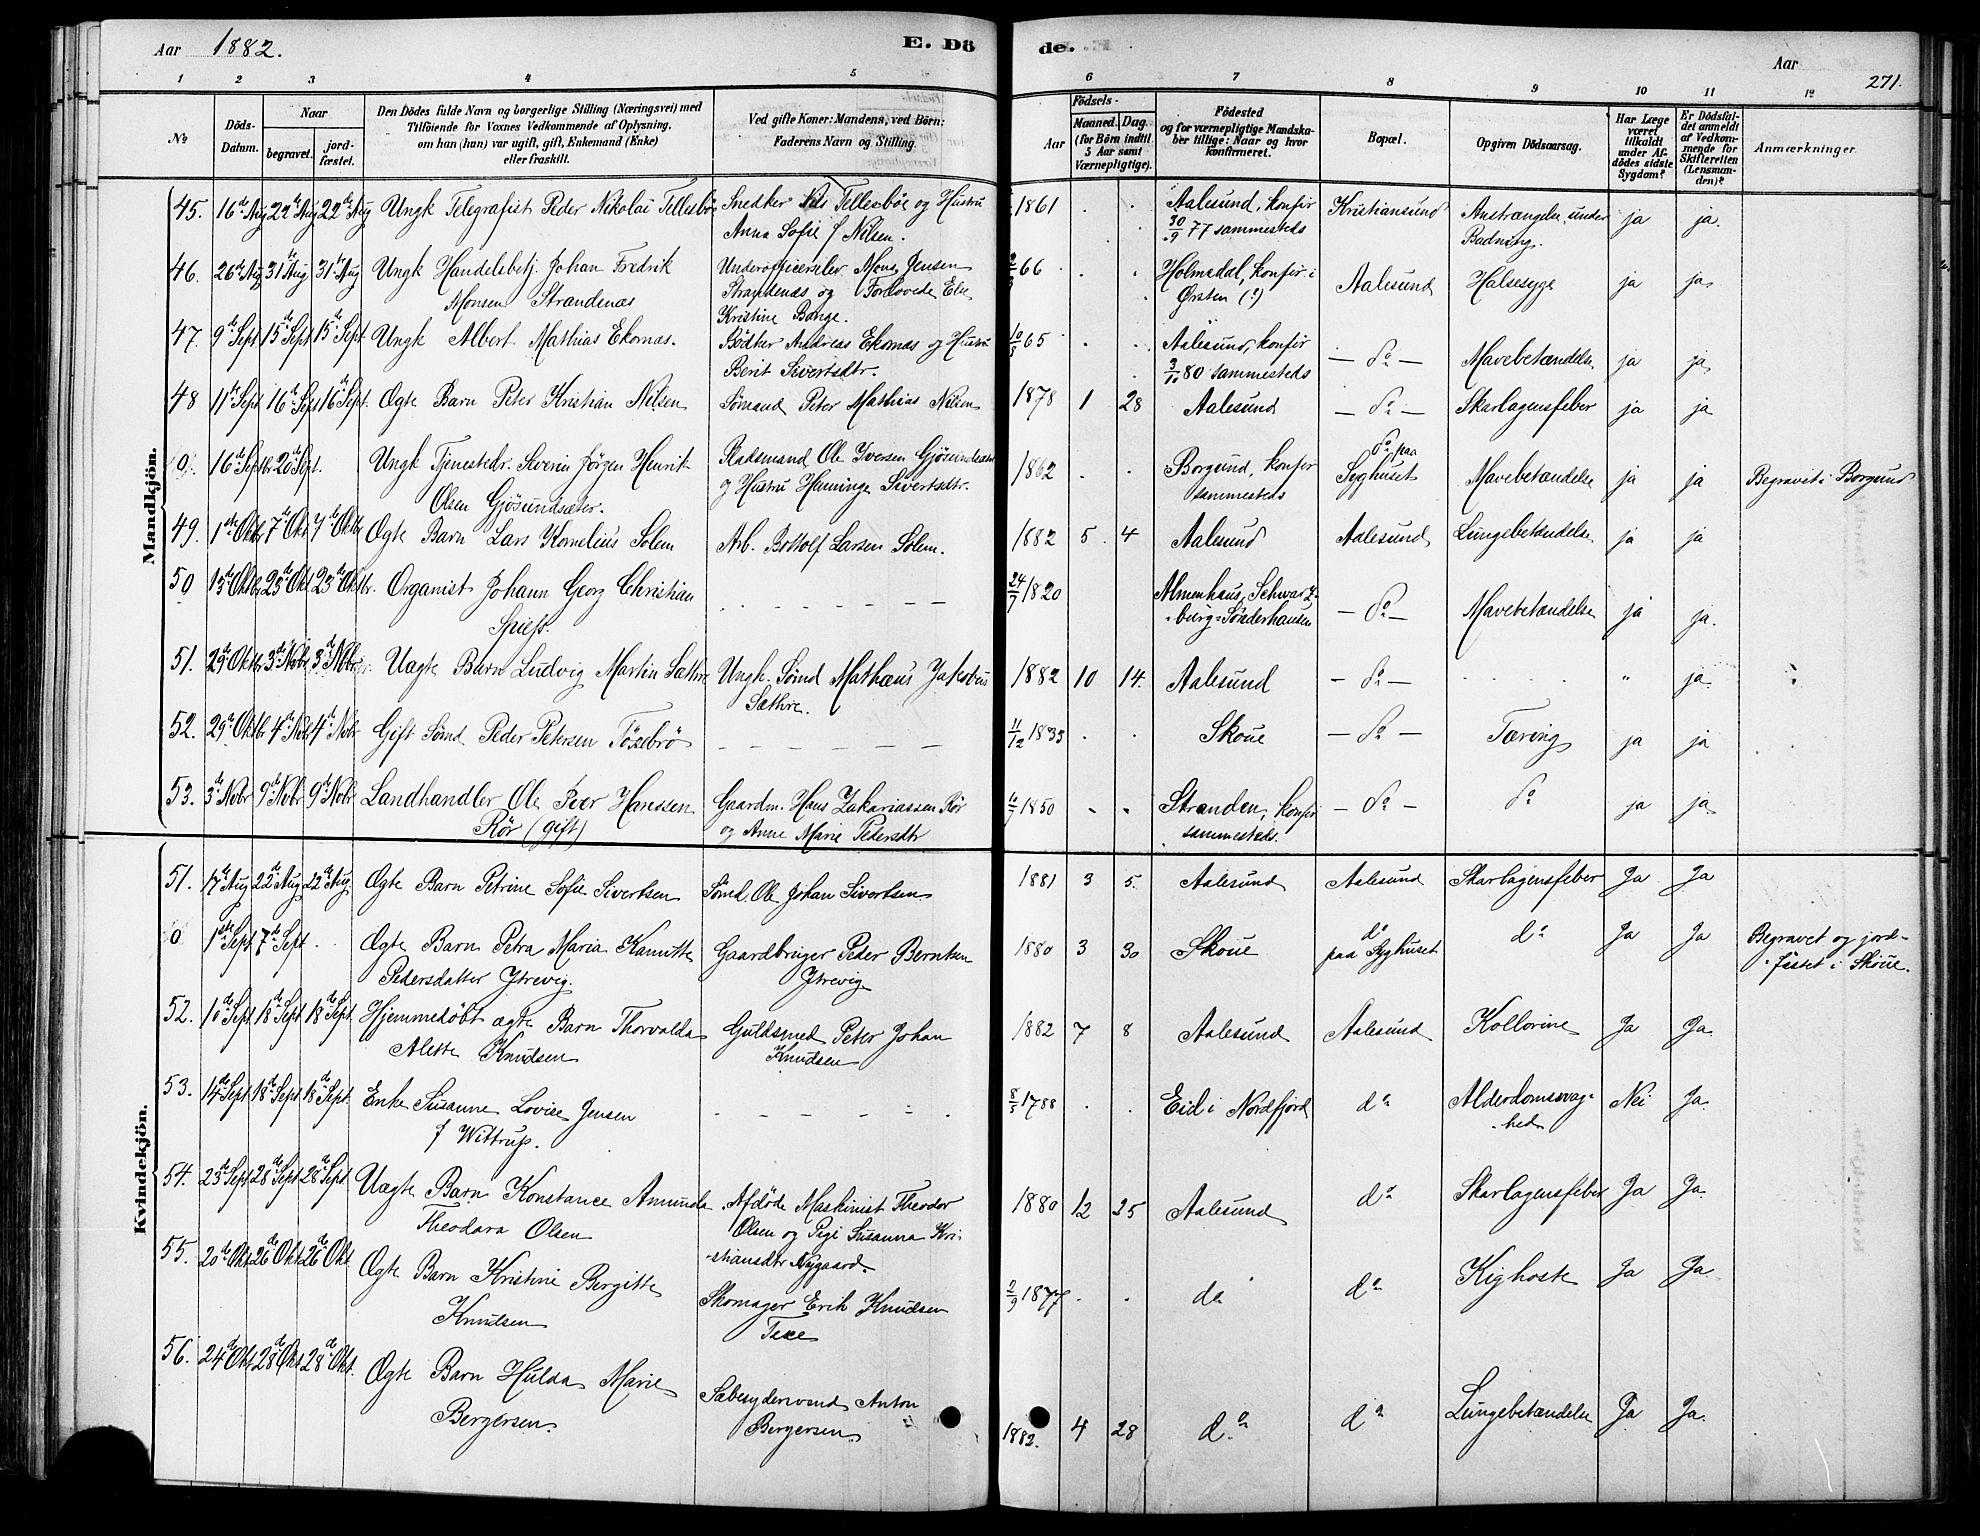 Aar 1882. E. Dö de. Aar
271.
1 2 3 4 5 6 7 8 9 10 11 12
No Döds-Datum. Naar begravet. jord-fæstet. Den Dödes fulde Navn og borgerlige Stilling (Næringsvei) med Tilföiende for Voxnes Vedkommende af Oplysning, om han (hun) var ugift, gift, Enkemand (Enke) eller fraskilt. Ved gifte Koner: Mandens, ved Börn: Faderens Navn og Stilling. Födsels- Aar Maaned. Dag. (for Börn indtil 5 Aar samt Værnepligtige). Födested og for værnepligtige Mandska-ber tillige: Naar og hvor konfirmeret. Bopæl. Opgiven Dödsaarsag. Har Læge været tilkaldt under Af-dödes sidste Sygdom? Er Dödsfal-det anmeldt af Vedkom-mende for Skifteretten (Lensman-den)? Anmærkninger.
Mandkjön.
45. 16de Aug 22de Aug 22de Aug Ungk Telegrafist Peder Nikolai Tellesbøe Snedker Nils Tellesbøe og Hustru 1861 . . Aalesund, konfir Kristiansund Anstrængelse under ja ja.
Anna Sofie f Nilsen. 30/9 77 sammesteds Badning.
46. 26de Aug 31te Aug 31te Aug Ungk Handelsbetj. Johan Fredrik Underofficerselev Mons Jensen 66 . . Holmedal, konfir i Aalesund Halsesyge ja ja.
Monsen Strandenæs Strandenæs og Forlovede Else Ørsten (?)
Kristine Bange.
47. 9de Sept 15de Sept 15de Sept Ungk Albert Mathias Ekornæs. Bødker Andreas Ekornæs og Hustru 10/3 65 . . Aalesund, konfir — do — Mavebetændelse ja ja
Berit Sivertsdtr. 3/10 80 sammesteds
48 11te Sept 16de Sept 16de Sept. Ægte Barn Peter Kristian Nilsen Sømand Peter Mathias Nilsen 1878 1 28 Aalesund — do — Skarlagensfeber ja ja
0. 16de Septbr 20de Sept. Ungk Tjenestedr. Severin Jörgen Henrik Pladsmand Ole Iversen Gjøsundsæter 1862 . . Borgund, konfir do paa Mavebetændelse ja ja Begravet i Borgund
Olsen Gjösundsæter. og Hustru Henninge Sivertsdtr. sammesteds Syghuset
49. 1ste Oktbr 7de Okt 7de Oktbr Ægte Barn Lars Kornelius Solem Arb. Bottolf Larsen Solem. 1882 5 4 Aalesund Aalesund Lungebetændelse ja ja
50 15de Oktbr 23de Okt 23de Oktbr. Organist Johann Georg Christian - - - - - 24/7 1820 Almenhaus, Schwarz- — do — Mavebetændelse ja ja.
Spiess. -burg-Sonderhausen
51. 29de Oktbr 3de Nobr 3de Nobr. Uægte Barn Ludvig Martin Sæthre Ungk. Sømd Mathæus Jakobus 1882 10 14. Aalesund — do — . . . „ ja.
Sæthre.
52. 29de Oktbr 4de Nobr 4de Nobr Gift Sømd Peder Petersen Tössebrö - - - - - 11/12 1833 . . Skoue — do — Tæring ja ja
53. 3de Nobr 9de Nobr 9de Nobr Landhandler Ole Iver Hanssen Gaardm. Hans Zakariassen Rör 1850 - - Stranden, konfir — do — do ja ja.
Rör (gift) og Anne Marie Pedersdtr sammesteds.
Kvindekjön.
51. 17de Aug 22de Aug 22de Aug. Ægte Barn Petrine Sofie Sivertsen Sömd. Ole Johan Sivertsen 1881 3 5. Aalesund Aalesund Skarlagensfeber Ja Ja
0 1ste Sept 7de Sept . Ægte Barn Petra Maria Kamitte Gaardbruger Peder Berntsen 1880 3 30 Skoue do do Ja Ja Begravet og jord-
Pedersdatter Ytrevig. Ytrevig paa Syghuset -fæstet i Skoue.
52. 10de Sept 18de Sept 18de Sept Hjemmedöbt ægte Barn Thorvalda Guldsmed Peter Johan 1882 7 8 Aalesund Aalesund Kollorine Ja Ja.
Alette Knudsen Knudsen
53. 14de Sept 18de Sept 18de Sept. Enke Susanne Lovise Jensen - - - - - 8/5 1788 . . Eid i Nordfjord do Alderdomssvag- Nei Ja.
f Wittrup. -hed
54. 23de Sept 28de Sept 28de Sept Uægte Barn Konstance Amunda Afdöde Maskinist Theodor 1880 12 25 Aalesund do Skarlagensfeber Ja Ja.
Theodora Olsen Olsen og Pige Susanna Kri-
-stiansdtr Nygaard.
55. 20de Okt 26de Okt 26de Okt Ægte Barn Kristine Bergitte Skomager Erik Knudsen 2/9 1877 . . do do Kighoste Ja Ja
Knudsen
56. 24de Okt 28de Okt 28de Okt. Ægte Barn Hulda Marie Sæbesyderswend Anton 1882. 4 28 do do Lungebetændelse Ja Ja.
Bergersen. Bergersen.